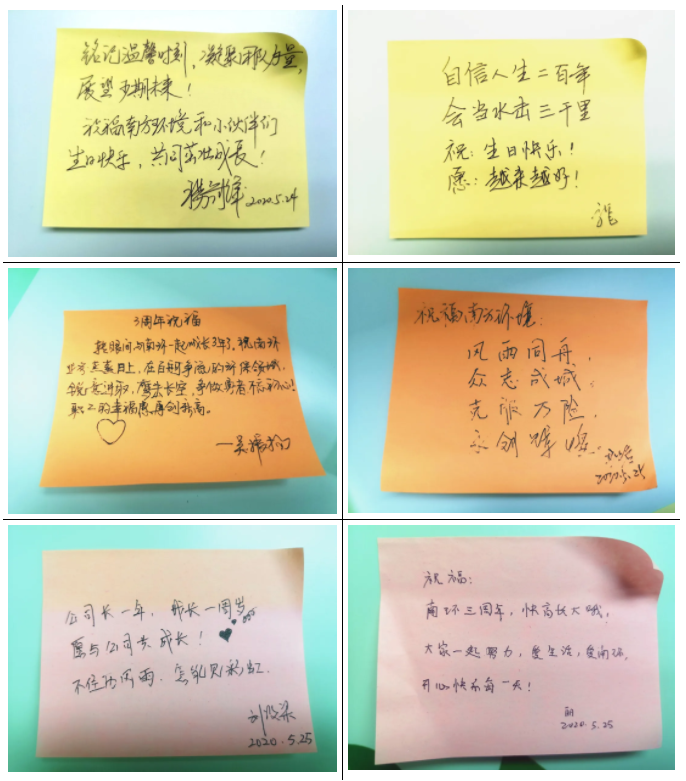 铭记温馨时刻，凝聚团队力量，
展望美好未来！
祝福南方环境和小伙伴们
生日快乐，共同茁壮成长！
2020.5.24
自信人生二百年
会当水击三千里
祝：生日快乐！
愿：越来越好！
3周年祝福
转眼间与南环一起成长3年了。祝南环
业务蒸蒸日上，在百舸争流的环保领域，
锐意进取，鹰击长空，争做勇者不忘初心！
职工的幸福感再创新高。
祝福南方环境：
风雨同舟，
众志成城；
克服万险，
永创辉煌。
2020.5.25
公司长一年，我长一周岁
愿与公司共成长！
不经历风雨，怎能见彩虹.
2020.5.25
祝福：
南环三周年，快高长大哦！
大家一起努力，爱生活，爱南环，
开心快乐每一天！
2020.5.25